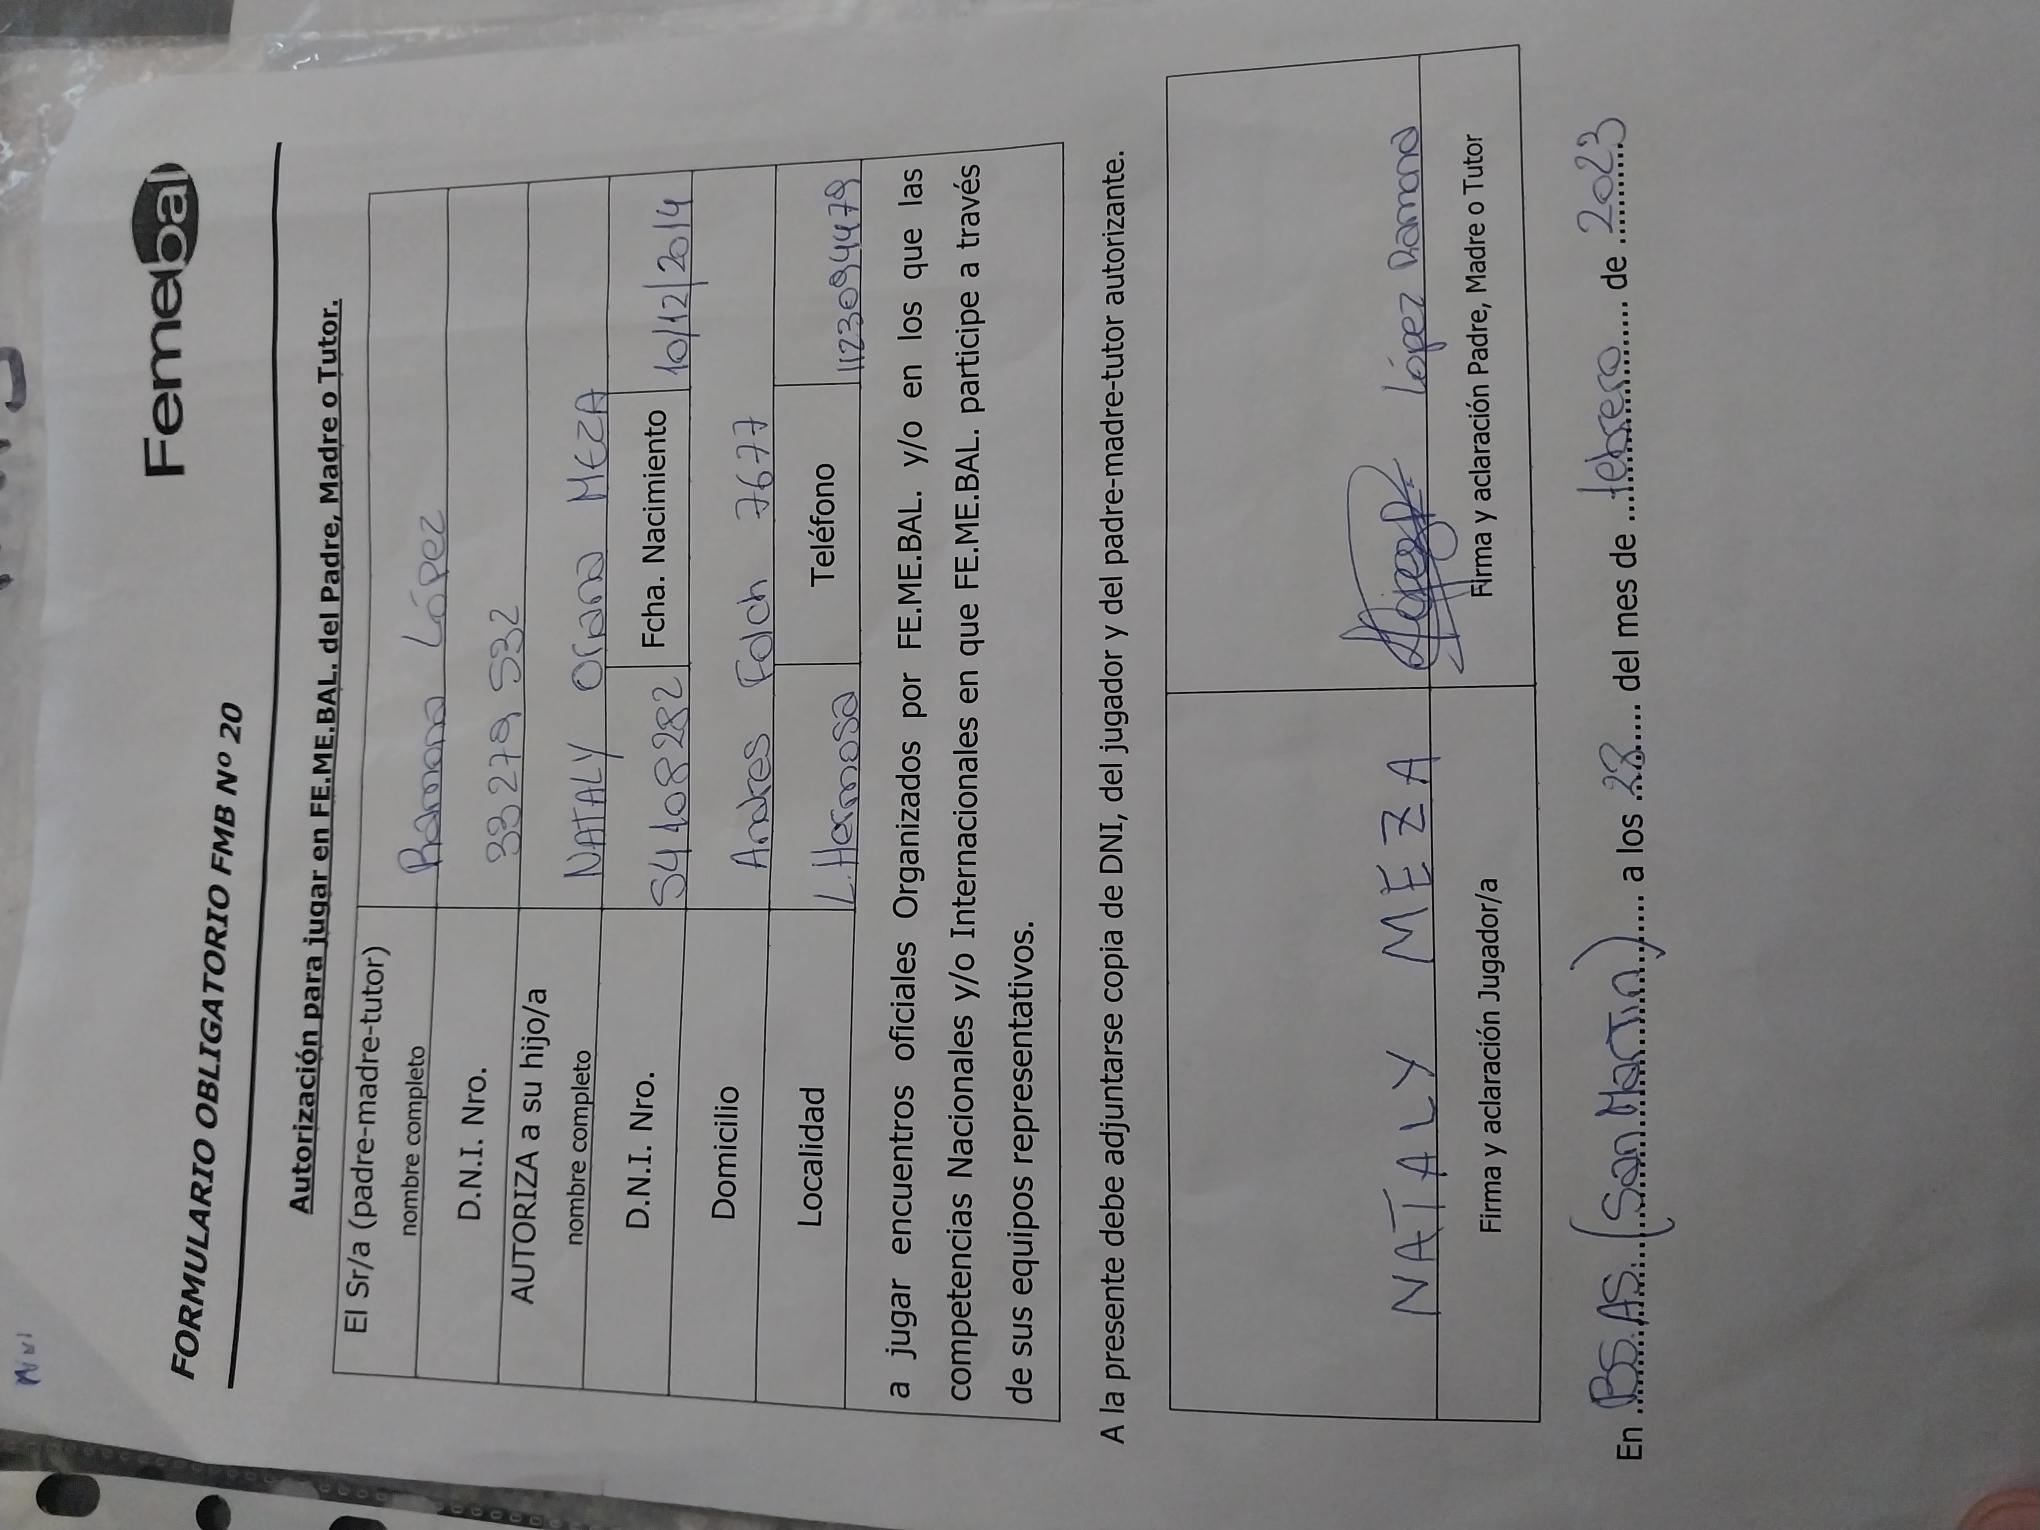 Femebal
FORMULARIO OBLIGATORIO FMB Nº 20
Autorización para jugar en FE.ME.BAL. del Padre, Madre o Tutor.
El Sr/a (padre-madre-tutor)
nombre completo
Ramona López
D.N.I. Nro.
33 279 532
AUTORIZA a su hijo/a
nombre completo
NATALY Oriana MEZA
D.N.I. Nro.
54 108 282
Fcha. Nacimiento
10/12/2014
Domicilio
Andres Folch 7677
Localidad
L. Hermosa
Teléfono
1123094479
a jugar encuentros oficiales Organizados por FE.ME.BAL. y/o en los que las
competencias Nacionales y/o Internacionales en que FE.ME.BAL. participe a través
de sus equipos representativos.
A la presente debe adjuntarse copia de DNI, del jugador y del padre-madre-tutor autorizante.
NATALY MEZA
López Ramona
Firma y aclaración Jugador/a
Firma y aclaración Padre, Madre o Tutor
En BS. AS. (San Martin) a los 28 del mes de febrero de 2023